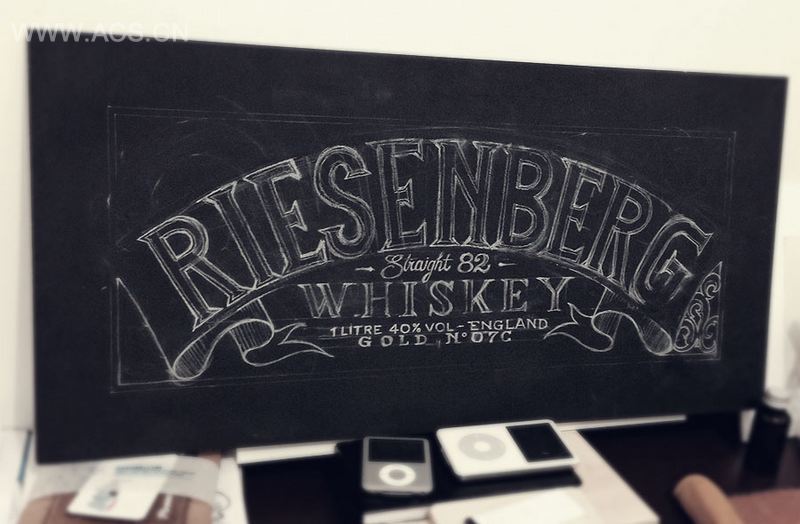 WWW.AOS.CN
RIESENBERG
Straight 82
WHISKEY
1 LITRE 40% VOL - ENGLAND
GOLD Nº 07C